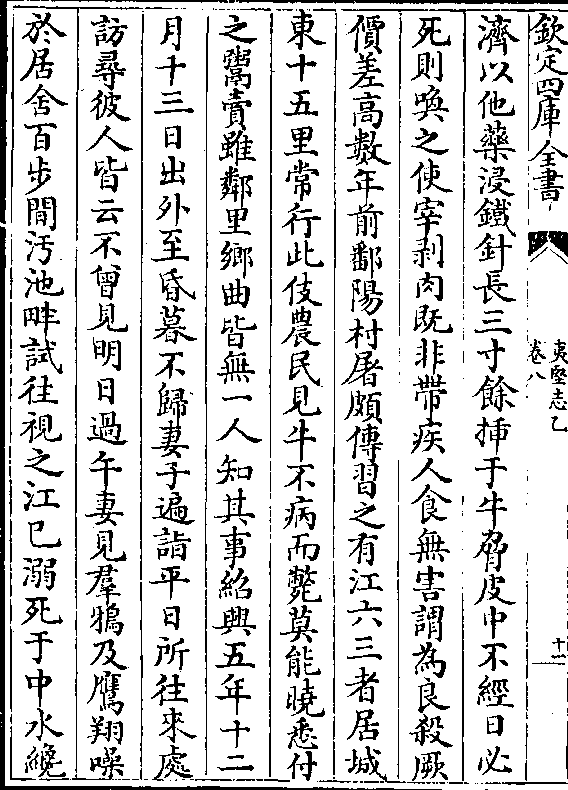 欽定四庫全書
夷堅志乙
卷八
十一
濟以他藥浸鐵針長三寸餘揷于牛脅皮中不經日必
死則喚之使宰剥肉既非帶疾人食無害謂為良殺厥
價差高數年前鄱陽村屠頗傳習之有江六三者居城
東十五里常行此伎農民見牛不病而斃莫能曉悉付
之鬻賣雖鄰里鄉曲皆無一人知其事紹興五年十二
月十三日出外至昏暮不歸妻子遍詣平日所往來處
訪尋彼人皆云不曾見明日過午妻見羣鴉及鷹翔噪
於居舍百步間汚池畔試往視之江已溺死于中水纔